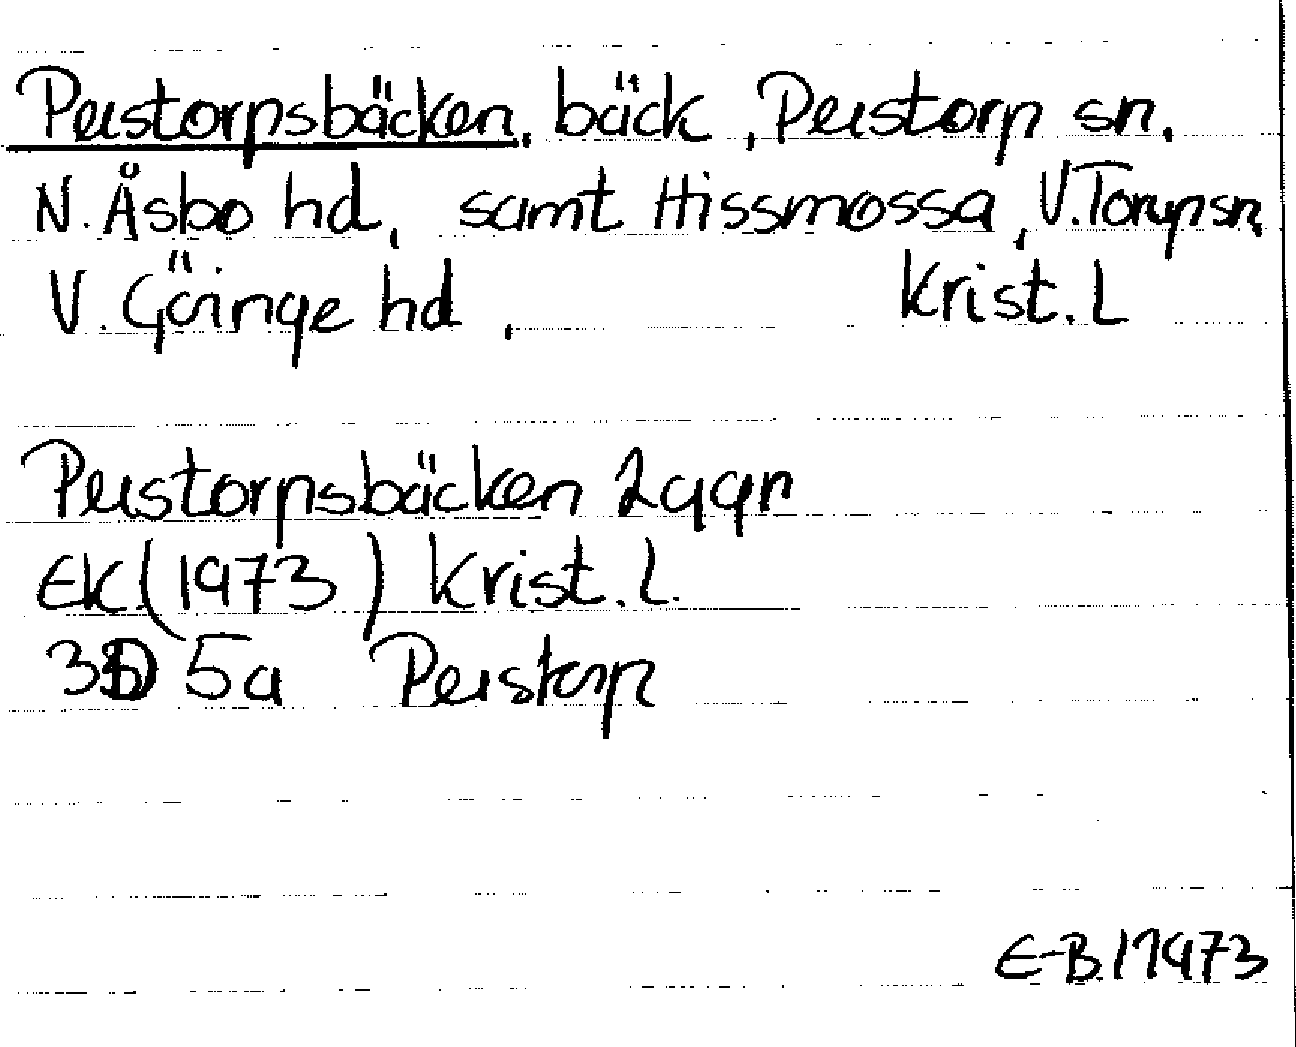 Perstorpsbäcken, bäck, Perstorp sn,
N. Åsbo hd, samt Hissmossa, V. Torup sn,
V. Göinge hd, Krist. L
Perstorpsbäcken 2 ggr
EK (1973) Krist. L.
3D 5a Perstorp
E-B 1973